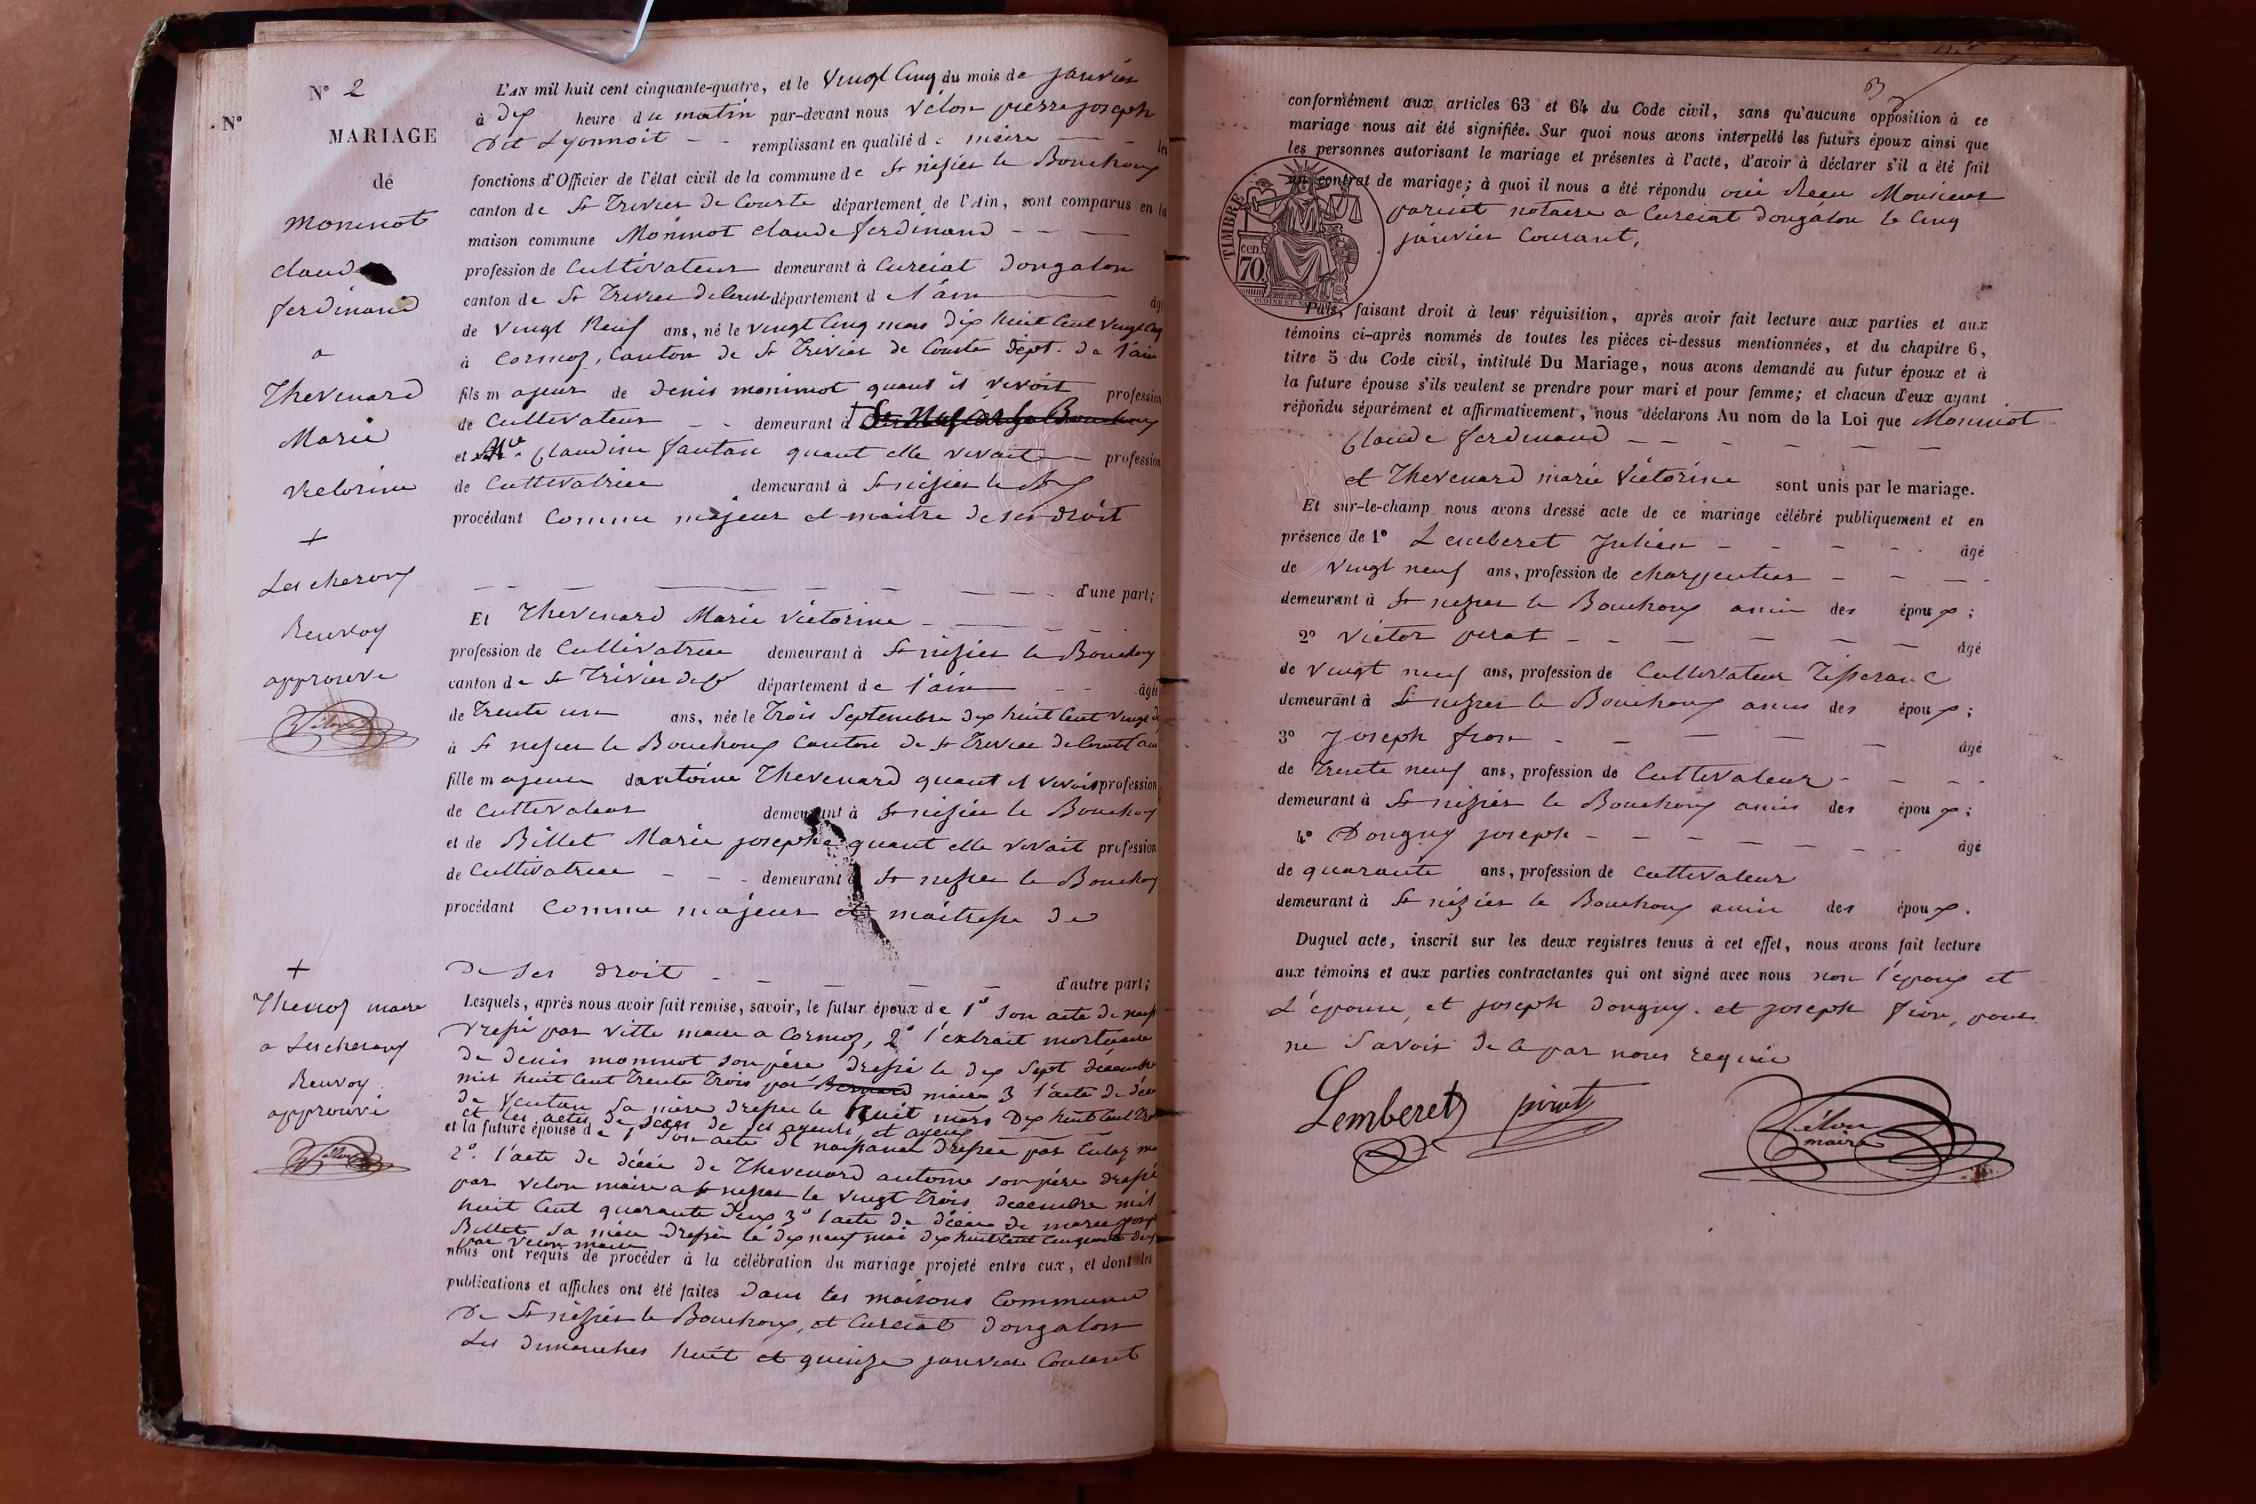 N° 2
N°
MARIAGE
de
Moninot
Claude
ferdinand
a
Thevenard
Marie
Victorine
+
Lescheroux
Renvoy
approuvé
Vélon
+
Thenoz maire
a Lescheroux
Renvoy
approuvé
Vélon
L'AN mil huit cent cinquante-quatre, et le Vingt Cinq du mois de janvier
à Dix heure du matin par-devant nous Vélon pierre joseph
Dit Lyonnoit - - remplissant en qualité de maire les
fonctions d'Officier de l'état civil de la commune de St nizier le Bouchoux
canton de St Trivier de Courte département de l'Ain, sont comparus en la
maison commune Moninot Claude ferdinand
profession de Cultivateur demeurant à Curciat Dongalon
canton de St Trivier de Courte département de l'ain âgé
de Vingt Neuf ans, né le Vingt Cinq mars Dix huit Cent Vingt Cinq
à Cormoz, Canton de St Trivier de Courte Dépt. de l'ain
fils majeur de Denis moninot quant il vivoit profession
de Cultivateur - - demeurant à + St Nizier Le Bouchoux
et de Claudine fautan quant elle vivait profession
de Cultivatrice demeurant à St nizier le Bx
procédant Comme majeur et maitre de ses droit
d'une part;
Et Thevenard Marie Victorine
profession de Cultivatrice demeurant à St nizier le Bouchoux
canton de St Trivier de Cte département de l'ain âgée
de Trente un ans, née le Trois Septembre Dix huit Cent Vingt
à St nizier le Bouchoux Canton de St Trivier de Courte ain
fille majeure d'antoine Thevenard quant il vivoit profession
de Cultivateur demeurant à St nizier le Bouchoux
et de Billet Marie josephe quant elle vivait profession
de Cultivatrice - - - demeurant à St nizier le Bouchoux
procédant Comme majeur et maitresse de
de ses droit - - - d'autre part;
Lesquels, après nous avoir fait remise, savoir, le futur époux de 1° Son acte de naiss
Dressé par Vitte maire a Cormoz, 2° l'extrait mortuaire
de Denis moninot son père dressé le dix Sept décembre
mil huit Cent Trente Trois par Bernard maire 3 l'acte de décé
de fautan Sa mère dressée le huit mars Dix huit Cent
et les actes de décés de ses ayeuls et ayeux
et la future épouse de 1° Son acte de naissance dressée par Cutaz
2°. l'acte de décée de Thevenard antoine son père dressé
par Vélon maire a St nizier le Vingt Trois décembre mil
huit Cent quarante Deux 3° l'acte de décée de marie
Billet Sa mère dressée le dix neuf mai dix huit Cent Cinquante Deux
par Vélon maire
nous ont requis de procéder à la célébration du mariage projeté entre eux, et dont les
publications et affiches ont été faites Dans les maisons Commune
De St nizier le Bouchoux, et Curciat Dongalon
Les Dimanches huit et quinze janvier Courant
63
conformément aux articles 63 et 64 du Code civil, sans qu'aucune opposition à ce
mariage nous ait été signifiée. Sur quoi nous avons interpellé les futurs époux ainsi que
les personnes autorisant le mariage et présentes à l'acte, d'avoir à déclarer s'il a été fait
un contrat de mariage; à quoi il nous a été répondu oui Recu Monsieur
notaire a Curciat Dongalon le Cinq
janvier Courant,
TIMBRE
70 cen
Puis, faisant droit à leur réquisition, après avoir fait lecture aux parties et aux
témoins ci-après nommés de toutes les pièces ci-dessus mentionnées, et du chapitre 6,
titre 5 du Code civil, intitulé Du Mariage, nous avons demandé au futur époux et à
la future épouse s'ils veulent se prendre pour mari et pour femme; et chacun d'eux ayant
répondu séparément et affirmativement, nous déclarons Au nom de la Loi que Moninot
Claude ferdinand
et Thevenard marie Victorine sont unis par le mariage.
Et sur-le-champ nous avons dressé acte de ce mariage célébré publiquement et en
présence de 1° Lemberet Julien - - - - âgé
de Vingt neuf ans, profession de charpentier - - - -
demeurant à St nizier le Bouchoux amis des époux;
2° Victor pirat - - - - - âgé
de Vingt neuf ans, profession de Cultivateur Tisserand
demeurant à St nizier le Bouchoux amis des époux;
3° Joseph fion - - - - - âgé
de Trente neuf ans, profession de Cultivateur - - - -
demeurant à St nizier le Bouchoux amis des époux;
4° Donguy joseph - - - - - - - âgé
de quarante ans, profession de Cultivateur
demeurant à St nizier le Bouchoux amis des époux.
Duquel acte, inscrit sur les deux registres tenus à cet effet, nous avons fait lecture
aux témoins et aux parties contractantes qui ont signé avec nous non l'époux et
L'épouse, et joseph Donguy. et joseph fion, pour
ne Savoir de ce par nous requis
Lemberet pirat
Vélon
maire